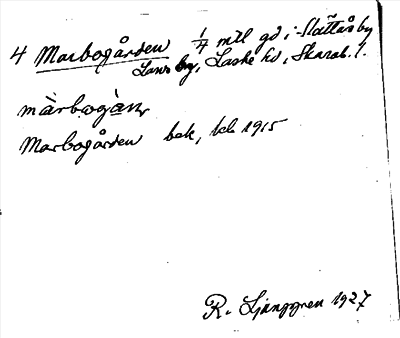 4 Marbogården 1/4 mtl gd i Slättås by
Lavs by, Laske hd, Skarab. l.
màrbogàṇ
Marbogården bok, kk 1915
R. Ljunggren 1927